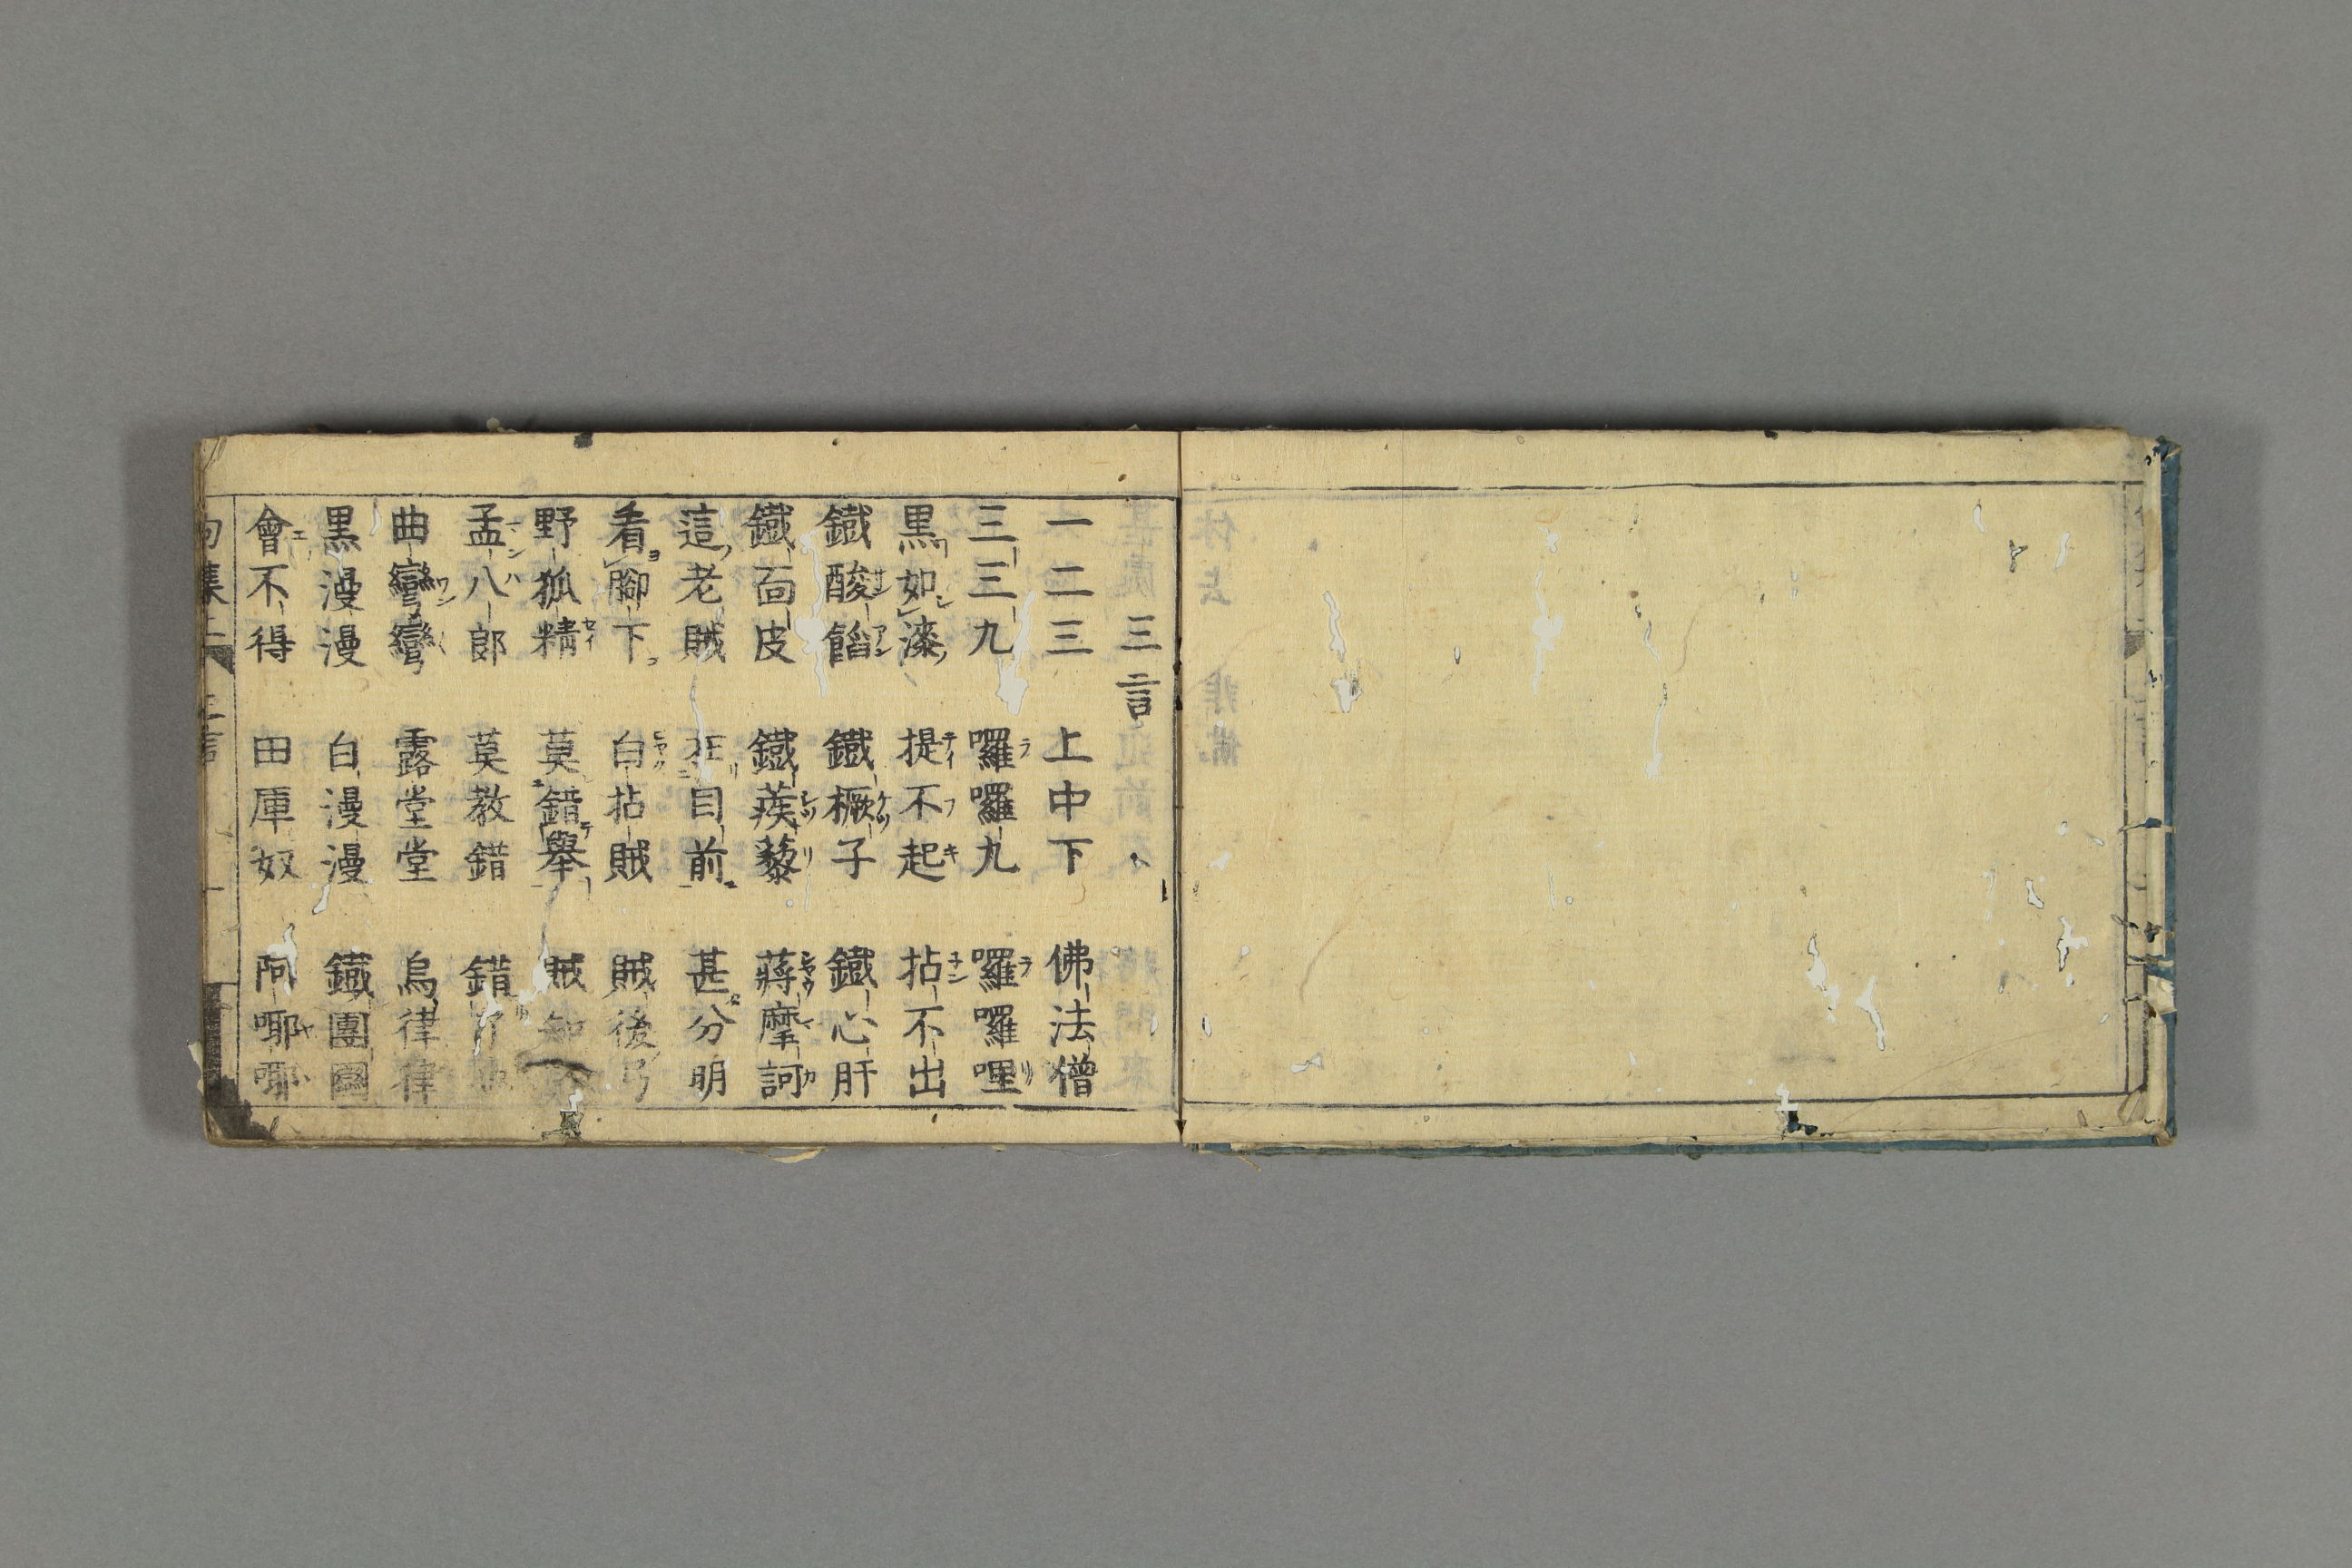 三言
一二三 上中下 佛法僧
三三九 囉囉九 囉囉哩
黒如漆 提不起 拈不出
鐵酸餡 鐵橛子 鐵心肝
鐵面皮 鐵蒺藜 蔣摩訶
這老賊 在目前 甚分明
看腳下 白拈賊 賊後弓
野狐精 莫錯舉 賊知
孟八郎 莫教錯 錯
曲彎彎 露堂堂 烏律律
黒漫漫 白漫漫 鐵團圝
會不得 田厙奴 阿㖿㖿
句集上 三言 一